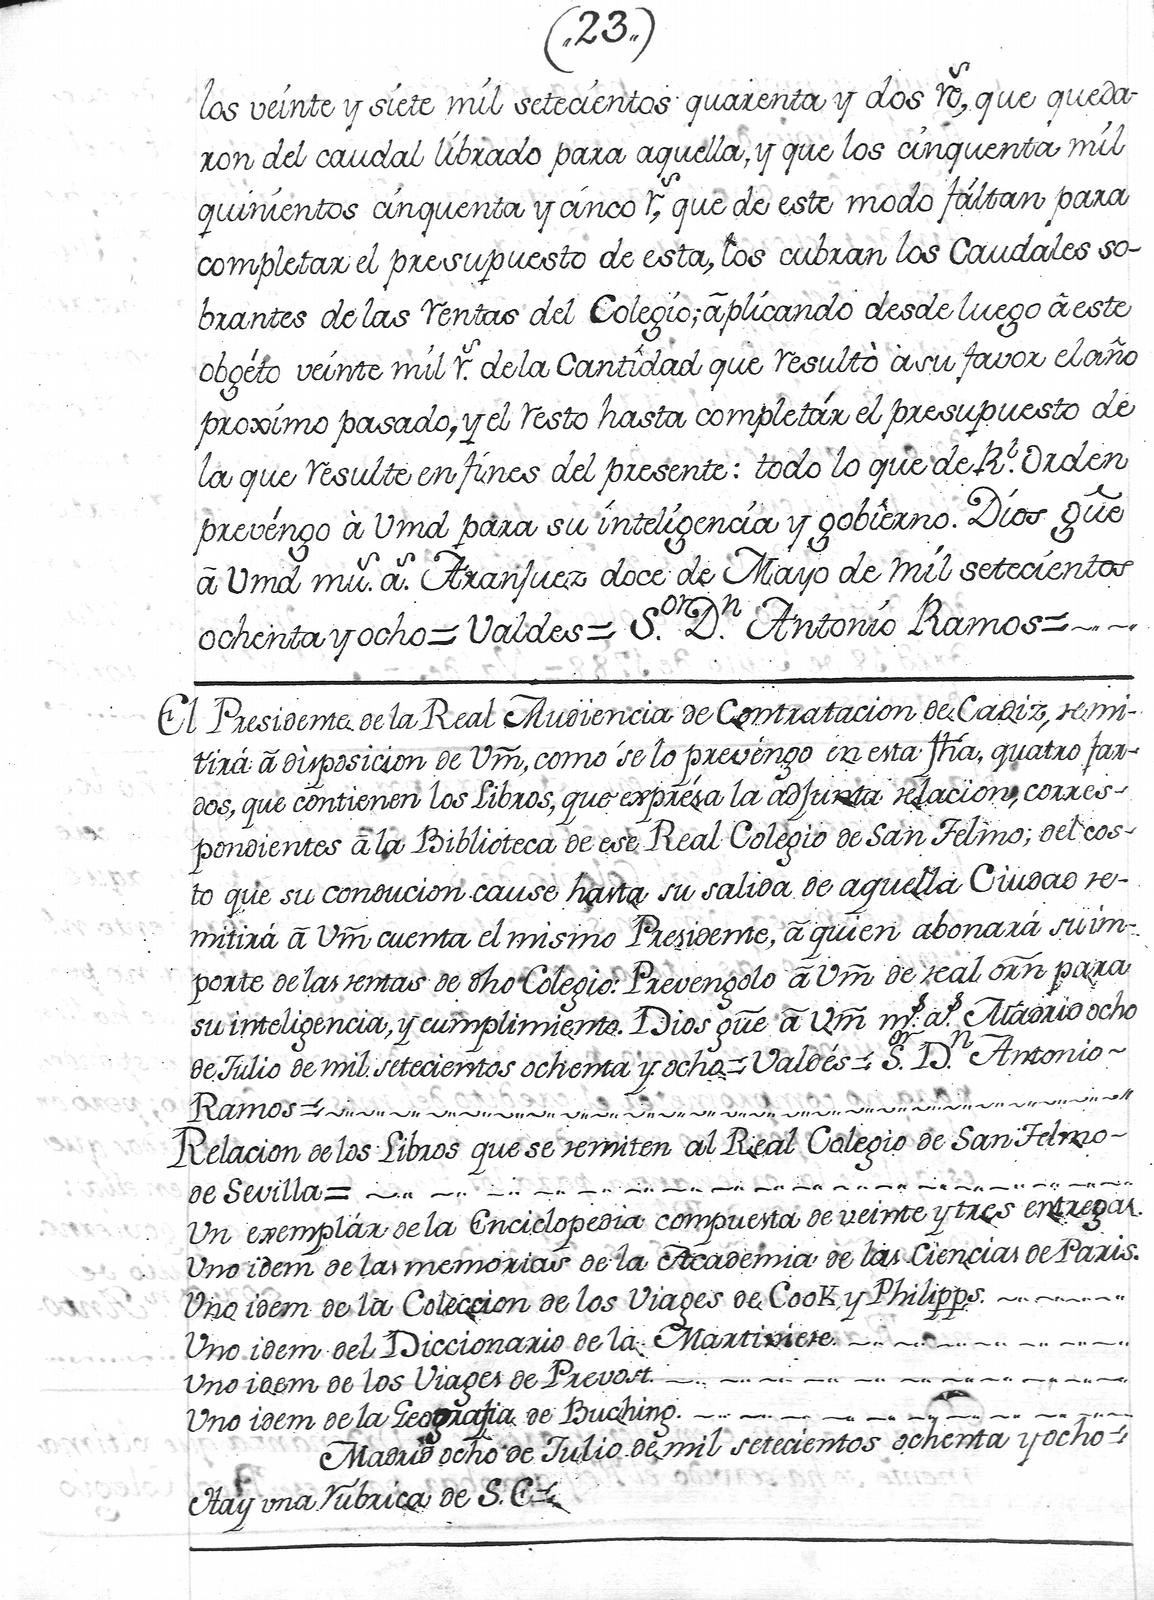 („23„)
los veinte y siete mil setecientos quarenta y dos r̃s, que queda-
ron del caudal librado para aquella, y que los cinquenta mil
quinientos cinquenta y cinco r.s, que de este modo fáltan para
completar el presupuesto de esta, los cubran los Caudales so-
brantes de las rentas del Colegio; ãplicando desde luego ã este
obgéto veinte mil r.s de la Cantidad que resultò à su favor el año
proxímo pasado, y el resto hasta completár el presupuesto de
la que resulte en fines del presente: todo lo que de R.l Orden
prevéngo à Vmd para su inteligencia y gobierno. Dios gũe
ã Vmd mũ.s ã.s Aranjuez doce de Mayo de mil setecientos
ochenta y ocho = Valdes = S.or D.n Antonio Ramos =
El Presidente de la Real Audiencia de Contratacion de Cadiz, remi-
tirá ã disposicion de Vm̃, como se lo prevéngo en esta fh̃a, quatro far-
dos, que contienen los Libros, que exprésa la adjunta relacion, corres-
pondientes ã la Biblioteca de ese Real Colegio de San Telmo; del cos-
to que su conducion cause hasta su salida de aquella Ciudad re-
mitirá ã Vm̃ cuenta el mismo Presidente, ã quien abonará su im-
porte de las rentas de dho Colegio: Prevengolo ã Vm̃ de real orñ para
su inteligencia, y cumplimiento. Dios gũe ã Vm̃ m.s a.s Madrid ocho
de Julio de mil setecientos ochenta y ocho = Valdés = S.or D.n Antonio
Ramos =
Relacion de los Libros que se remiten al Real Colegio de San Telmo
de Sevilla =
Un exemplár de la Enciclopedia compuesta de veinte y tres entregas.
Uno idem de las memorias de la Academia de las Ciencias de Paris.
Uno idem de la Coleccion de los Viages de Cook y Philipps.
Uno idem del Diccionario de la Martiniere.
Uno idem de los Viages de Prevost.
Uno idem de la Geografia de Buching.
Madrid ocho de Julio de mil setecientos ochenta y ocho =
Hay una rúbrica de S. E. =